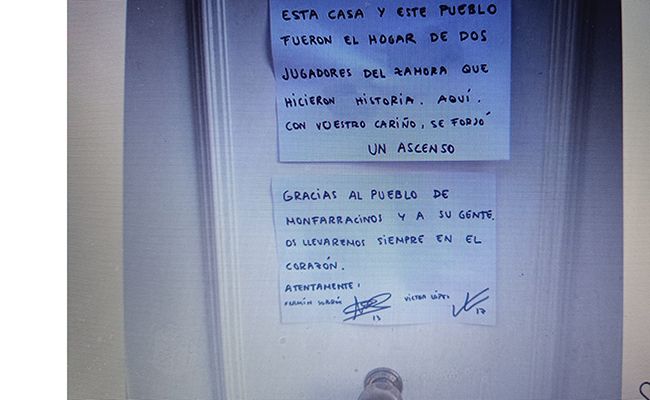 ESTA CASA Y ESTE PUEBLO
FUERON EL HOGAR DE DOS
JUGADORES DEL ZAMORA QUE
HICIERON HISTORIA. AQUÍ.
CON VUESTRO CARIÑO, SE FORJÓ
UN ASCENSO
GRACIAS AL PUEBLO DE
MONFARRACINOS Y A SU GENTE.
OS LLEVAREMOS SIEMPRE EN EL
CORAZÓN.
ATENTAMENTE:
VICTOR LÓPEZ
13 17